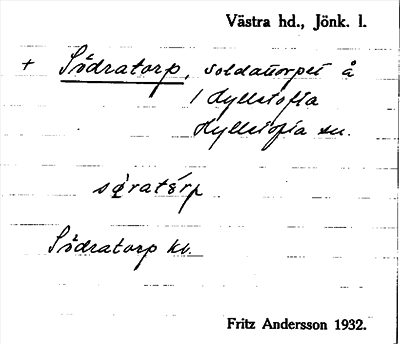 Västra hd., Jönk. l.
+ Södratorp, soldattorpet å
1 Hyllstofta
Hyllstofta sn.
Södratorp kv.
Fritz Andersson 1932.